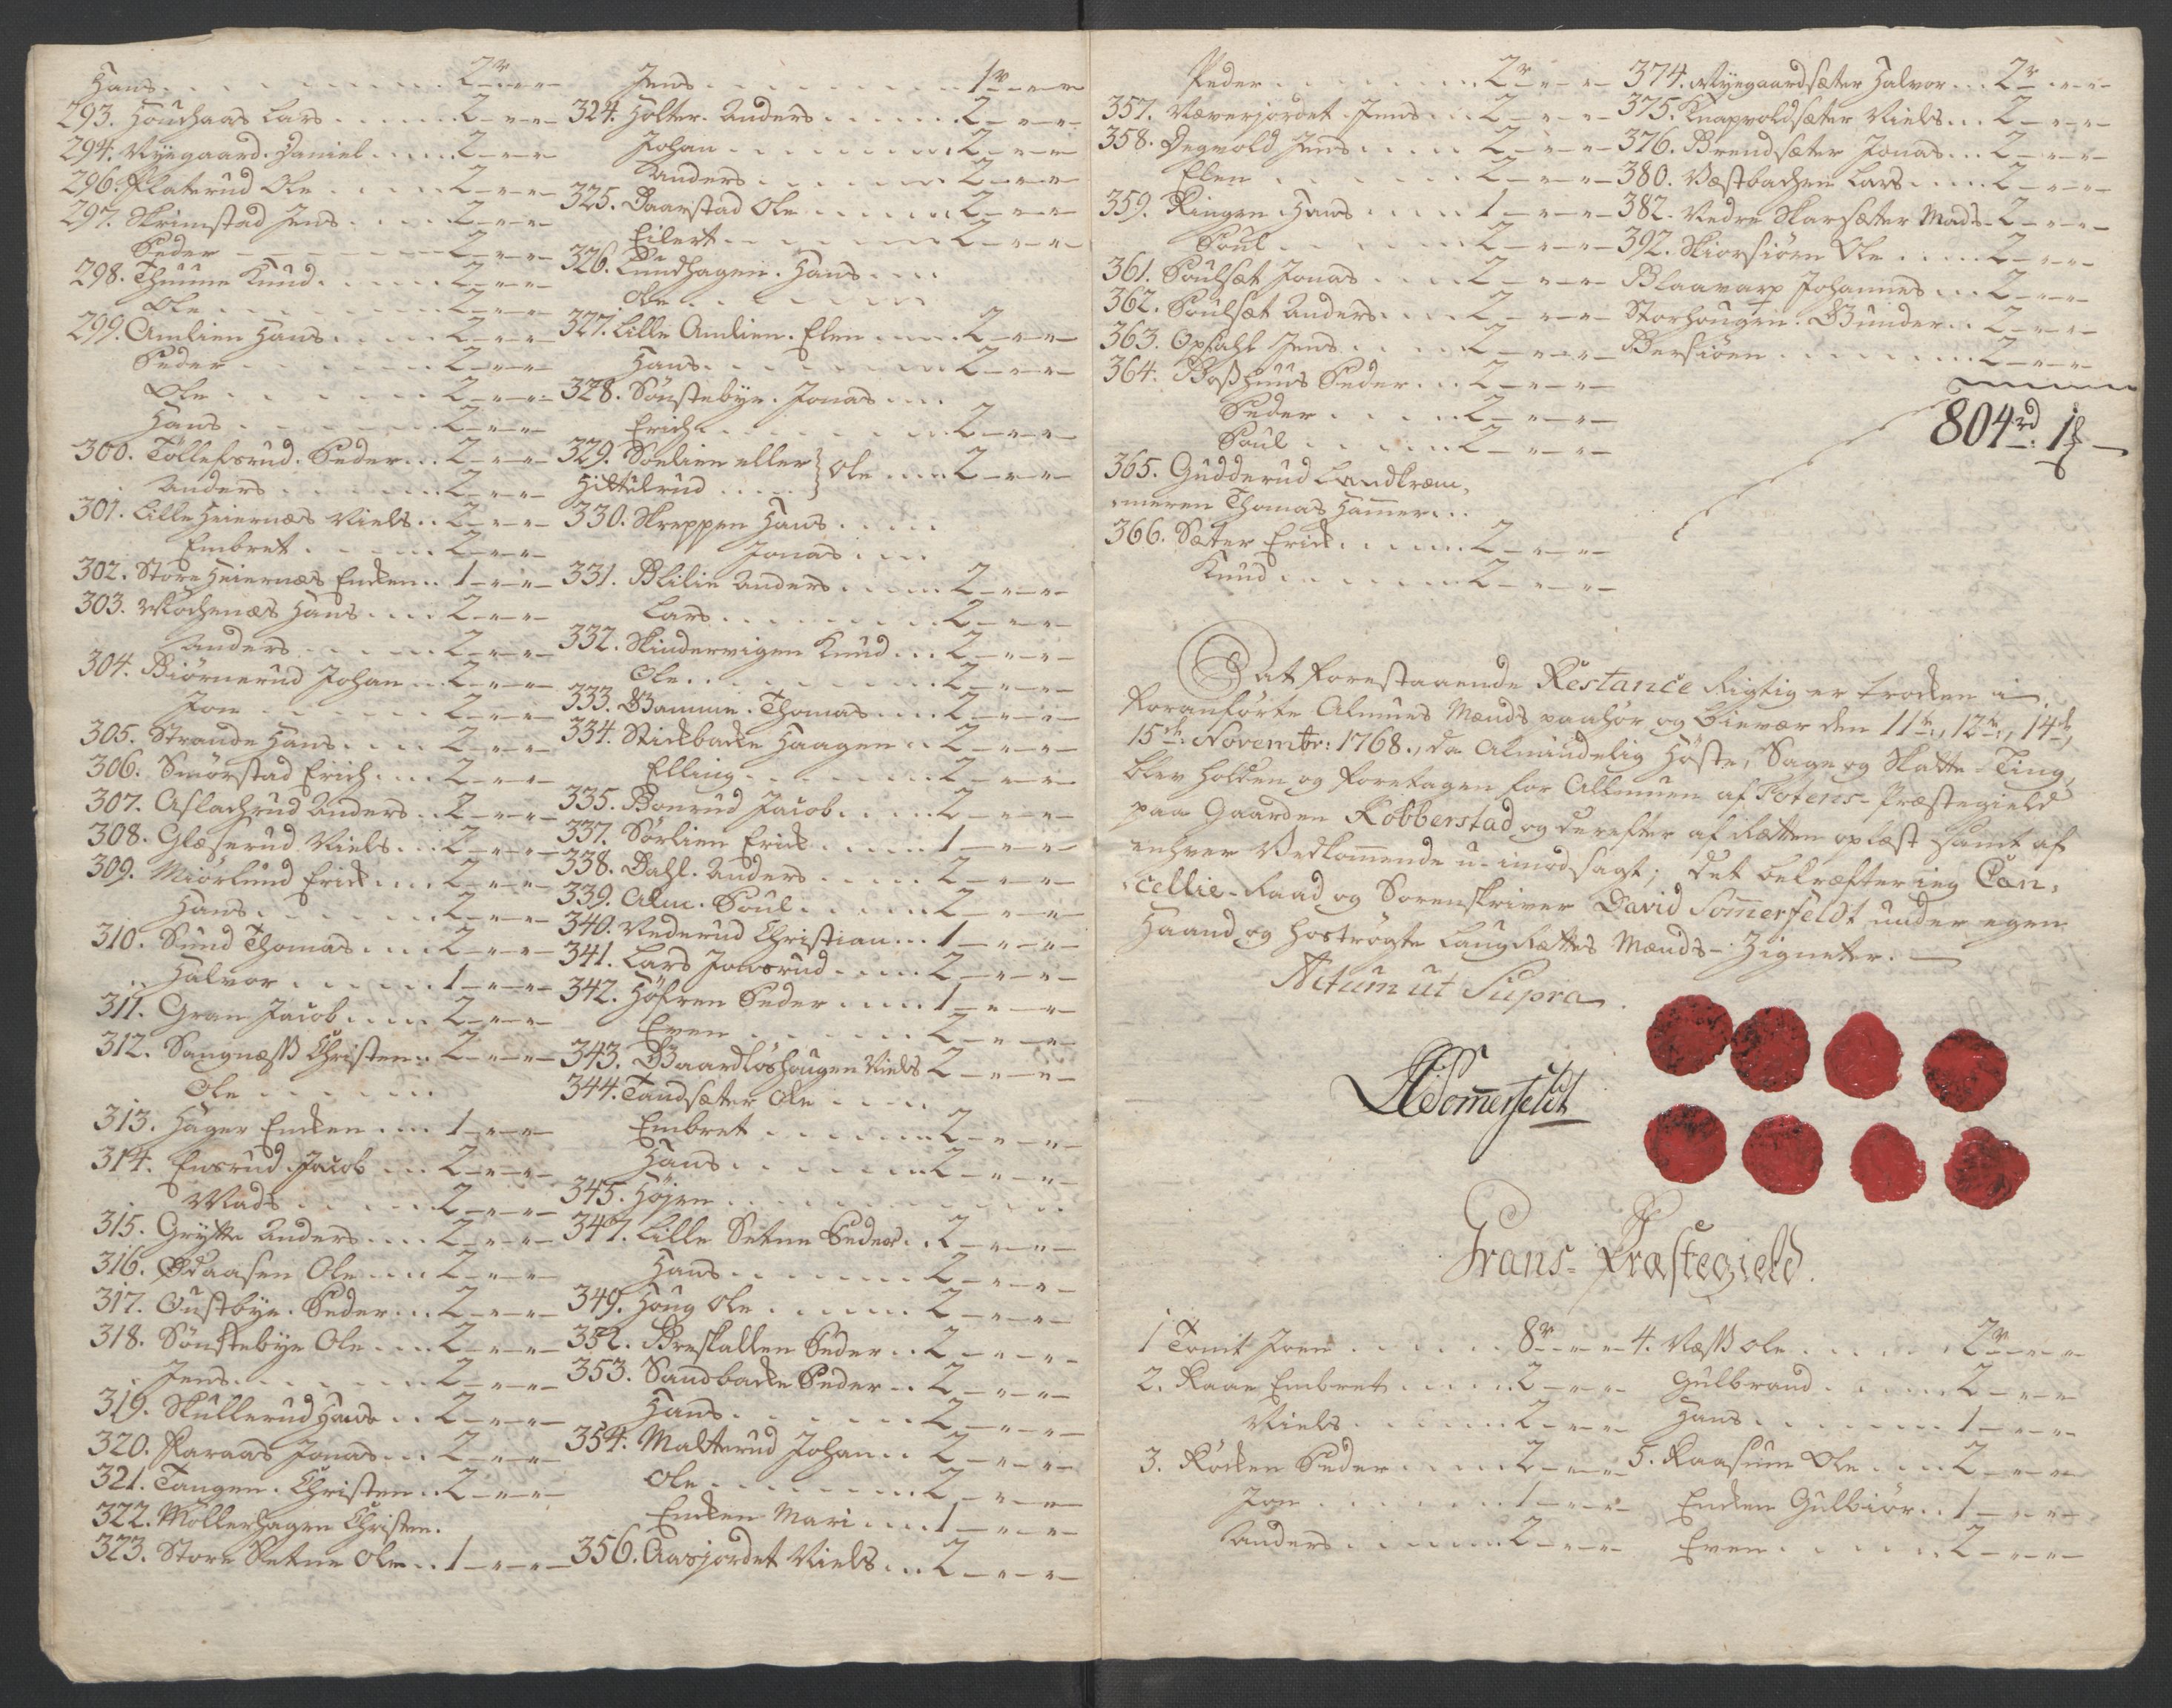 Hans . . . . . . . . 2r „ „
293. Houchaas Lars . . . . . 2 „ „
294. Nyegaard. Daniel . . . . 2 „ „
296. Flaterud Ole . . . . . 2 „ „
297. Skrimstad Jens . . . . 2 „ „
Peder . . . . 2 „ „
298. Thuune Knud . . . . . 2 „ „
Ole . . . . . . 2 „ „
299. Amlien Hans . . . . . 2 „ „
Peder . . . . . . 2 „ „
Ole . . . . . . 2 „ „
Hans . . . . . . 2 „ „
300. Tollefsrud. Peder . . . 2 „ „
Anders . . . . . . 2 „ „
301. Lille Heiernæs Niels . . 2 „ „
Embret . . . . . 2 „ „
302. Store Heiernæs Encken . . 1 „ „
303. Mochenæs Hans . . . . 2 „ „
Anders . . . . . 2 „ „
304. Biørnerud Johan . . . 2 „ „
Jon . . . . . . 2 „ „
305. Strande Hans . . . . 2 „ „
306. Smørstad Erich . . . . 2 „ „
307. Aslachrud Anders . . . 2 „ „
308. Glæserud Niels . . . 2 „ „
309. Miørlund Erick . . . . 2 „ „
Hans . . . . . . 2 „ „
310. Sund Thomas . . . . 2 „ „
Halvor . . . . . . 1 „ „
311. Gran Jacob . . . . . 2 „ „
312. Sangnæss Christen . . 2 „ „
Ole . . . . . .
313. Hager Encken . . . . 1 „ „
314. Ensrud Jacob . . . 2 „ „
Mads . . . . . 2 „ „
315. Grytte Anders . . . . 2 „ „
316. Ødaasen Ole . . . . 2 „ „
317. Gustbye. Peder . . . 2 „ „
318. Sønstebye Ole . . . . 2 „ „
Jens . . . . . . 2 „ „
319. Skullerud Hans . . . 2 „ „
320. Raraas Jonas . . . 2 „ „
321. Tangen. Christen . . 2 „ „
322. Møllerhagen Christen.
323. Store Setne Ole . . 1 „ „
Jens . . . . . . . . 1r „ „
324. Holter. Anders . . . . . 2 „ „
Johan . . . . . . . 2 „ „
Anders . . . . . . . 2 „ „
325. Daarstad Ole . . . . . . 2 „ „
Eilert . . . . . . . 2 „ „
326. Lundhagen. Hans . . .
Ole . . . . . . .
327. Lille Amlien. Elen . . . . 2 „ „
Hans . . . . . . . 2 „ „
328. Sønstebye. Jonas . . .
Erich . . . . . . . 2 „ „
329. Soelien eller } Ole . . . . 2 „ „
Hittelrud . . . .
330. Skreppen Hans . . . .
Jonas . . .
331. Blilie Anders . . . . . 2 „ „
Lars . . . . . . . 2 „ „
332. Skindervigen Knud . . . 2 „ „
Ole . . . . . . . 2 „ „
333. Gamme. Thomas . . . . 2 „ „
334. Stickbacke Haagen . . . 2 „ „
Elling . . . . . . . 2 „ „
335. Bonrud Jacob . . . . . 2 „ „
337. Sørlien Erick . . . . . 1 „ „
338. Dahl. Anders . . . . . 2 „ „
339. Alm. Poul . . . . . . 2 „ „
340. Nederud Christian . . . 1 „ „
341. Lars Jonsrud . . . . . 2 „ „
342. Høfren Peder . . . . . 1 „ „
Even . . . . . . . 2 „ „
343. Baardløshougen Niels 2 „ „
344. Tandsæter Ole . . . .
Embret . . . . . . . 2 „ „
Hans . . . . . . . 2 „ „
345. Højen . . . . . . . .
347. Lille Setne Peder . . 2 „ „
Hans . . . . . . . 2 „ „
349. Houg Ole . . . . . . 2 „ „
352. Breskallen Peder . . 2 „ „
353. Sandbacke Peder . . 2 „ „
Hans . . . . . . . 2 „ „
354. Malterud Johan . . 2 „ „
Ole . . . . . . . 2 „ „
Encken Mari . . . . 1 „ „
356. Aasjordet Niels . . . 2 „ „
Peder . . . . . . . 2r „ „
357. Næverjordet. Jens . . . 2 „ „
358. Degvold Jens . . . . . 2 „ „
Elen . . . . . . . 2 „ „
359. Ringen Hans . . . . . 1 „ „
Poul . . . . . . . 2 „ „
361. Poulset Jonas . . . . 2 „ „
362. Poulsæt Anders . . . . 2 „ „
363. Opsahl Jens . . . . . 2 „ „
364. Bosshuus Peder . . . 2 „ „
Peder . . . . . 2 „ „
Poul . . . . . 2 „ „
365. Gudderud Landkræm„
meren Thomas Hammer . . .
366. Sæter Erick . . . . . . 2 „ „
Knud . . . . . . . 2 „ „
374. Nyegaardsæter Halvor . . . 2r „ „
375. Knapvoldsæter Niels . . . 2 „ „
376. Brendsæter Jonas . . . 2 „ „
380. Væstbachen Lars . . . . 2 „ „
382. Nedre Skarsæter Mads . 2 „ „
392. Skiorsiøen Ole . . . . . 2 „ „
Blaavarp Johannes . . . 2 „ „
Storhougen. Gunder . . 2 „ „
Bersiøen . . . . . . . . 2 „ „
804rd. 1ß
At forestaaende Restance Rigtig er trocken i
foranførte Almues Mænds paahør og bievær den 11te, 12te, 14de,
15de: Novembr: 1768., da Almindelig Høste, Sage og Skatte-Ting
blev holden og foretagen for Allmuen af Totens-Præstegield
paa Gaarden Robberstad og derefter af Rætten oplæst samt af
enhver Vedkommende u-imodsagt; det bekræfter ieg Can„
cellie-Raad og Sorenskriver David Sommerfeldt under egen
Haand og hostrøgte Laug Rættes Mænds-Zigneter.
Actum ut Supra
DSommerfeldt
Grans-Præstegield.
1 Tomt Joen . . . . . . 8r „ „
2. Raae Embret . . . . . 2 „ „
Niels . . . . . . 2 „ „
3. Røcken Peder . . . . . 2 „ „
Jon . . . . . . . 1 „ „
Anders . . . . . . 2 „ „
4. Næss Ole . . . . . . 2r „ „
Gulbrand . . . . . . 2 „ „
Hans . . . . . . . 1 „ „
5. Raasum Ole . . . . 2 „ „
Encken Gulbiør . . 1 „ „
Even . . . . . . . 2 „ „